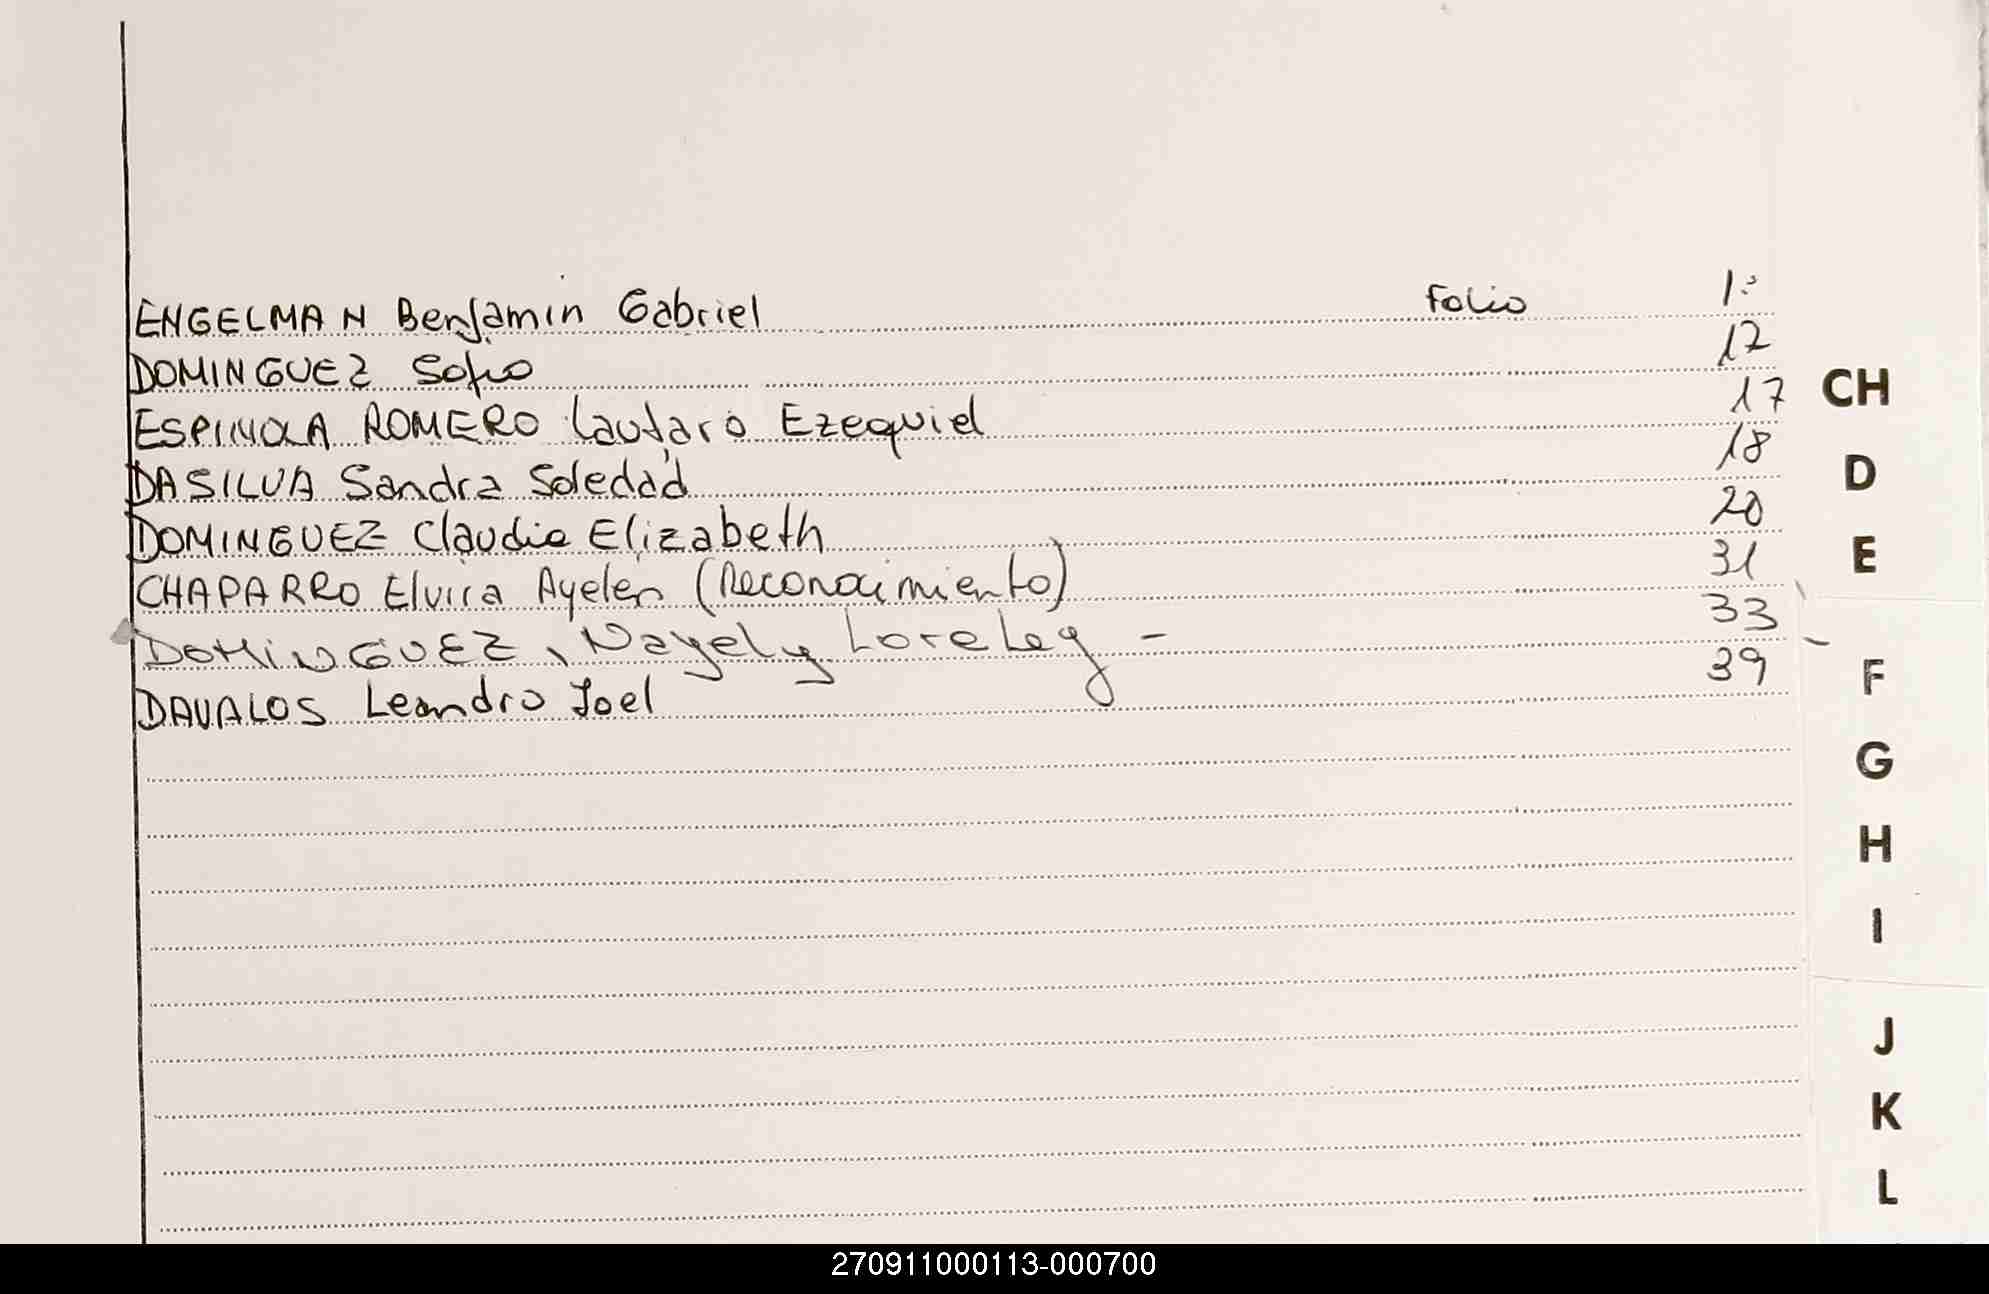 ENGELMAN Benjamin Gabriel Folio 1º
DOMINGUEZ Sofia 12
ESPINOLA ROMERO Lautaro Ezequiel 17
DASILVA Sandra Soledad 18
DOMINGUEZ Claudia Elizabeth 20
CHAPARRO Elvira Ayelen (Reconocimiento) 31
DOMINGUEZ, Nayely Loreley - 33 -
DAVALOS Leandro Joel 39
CH
D
E
F
G
H
I
J
K
L
270911000113-000700